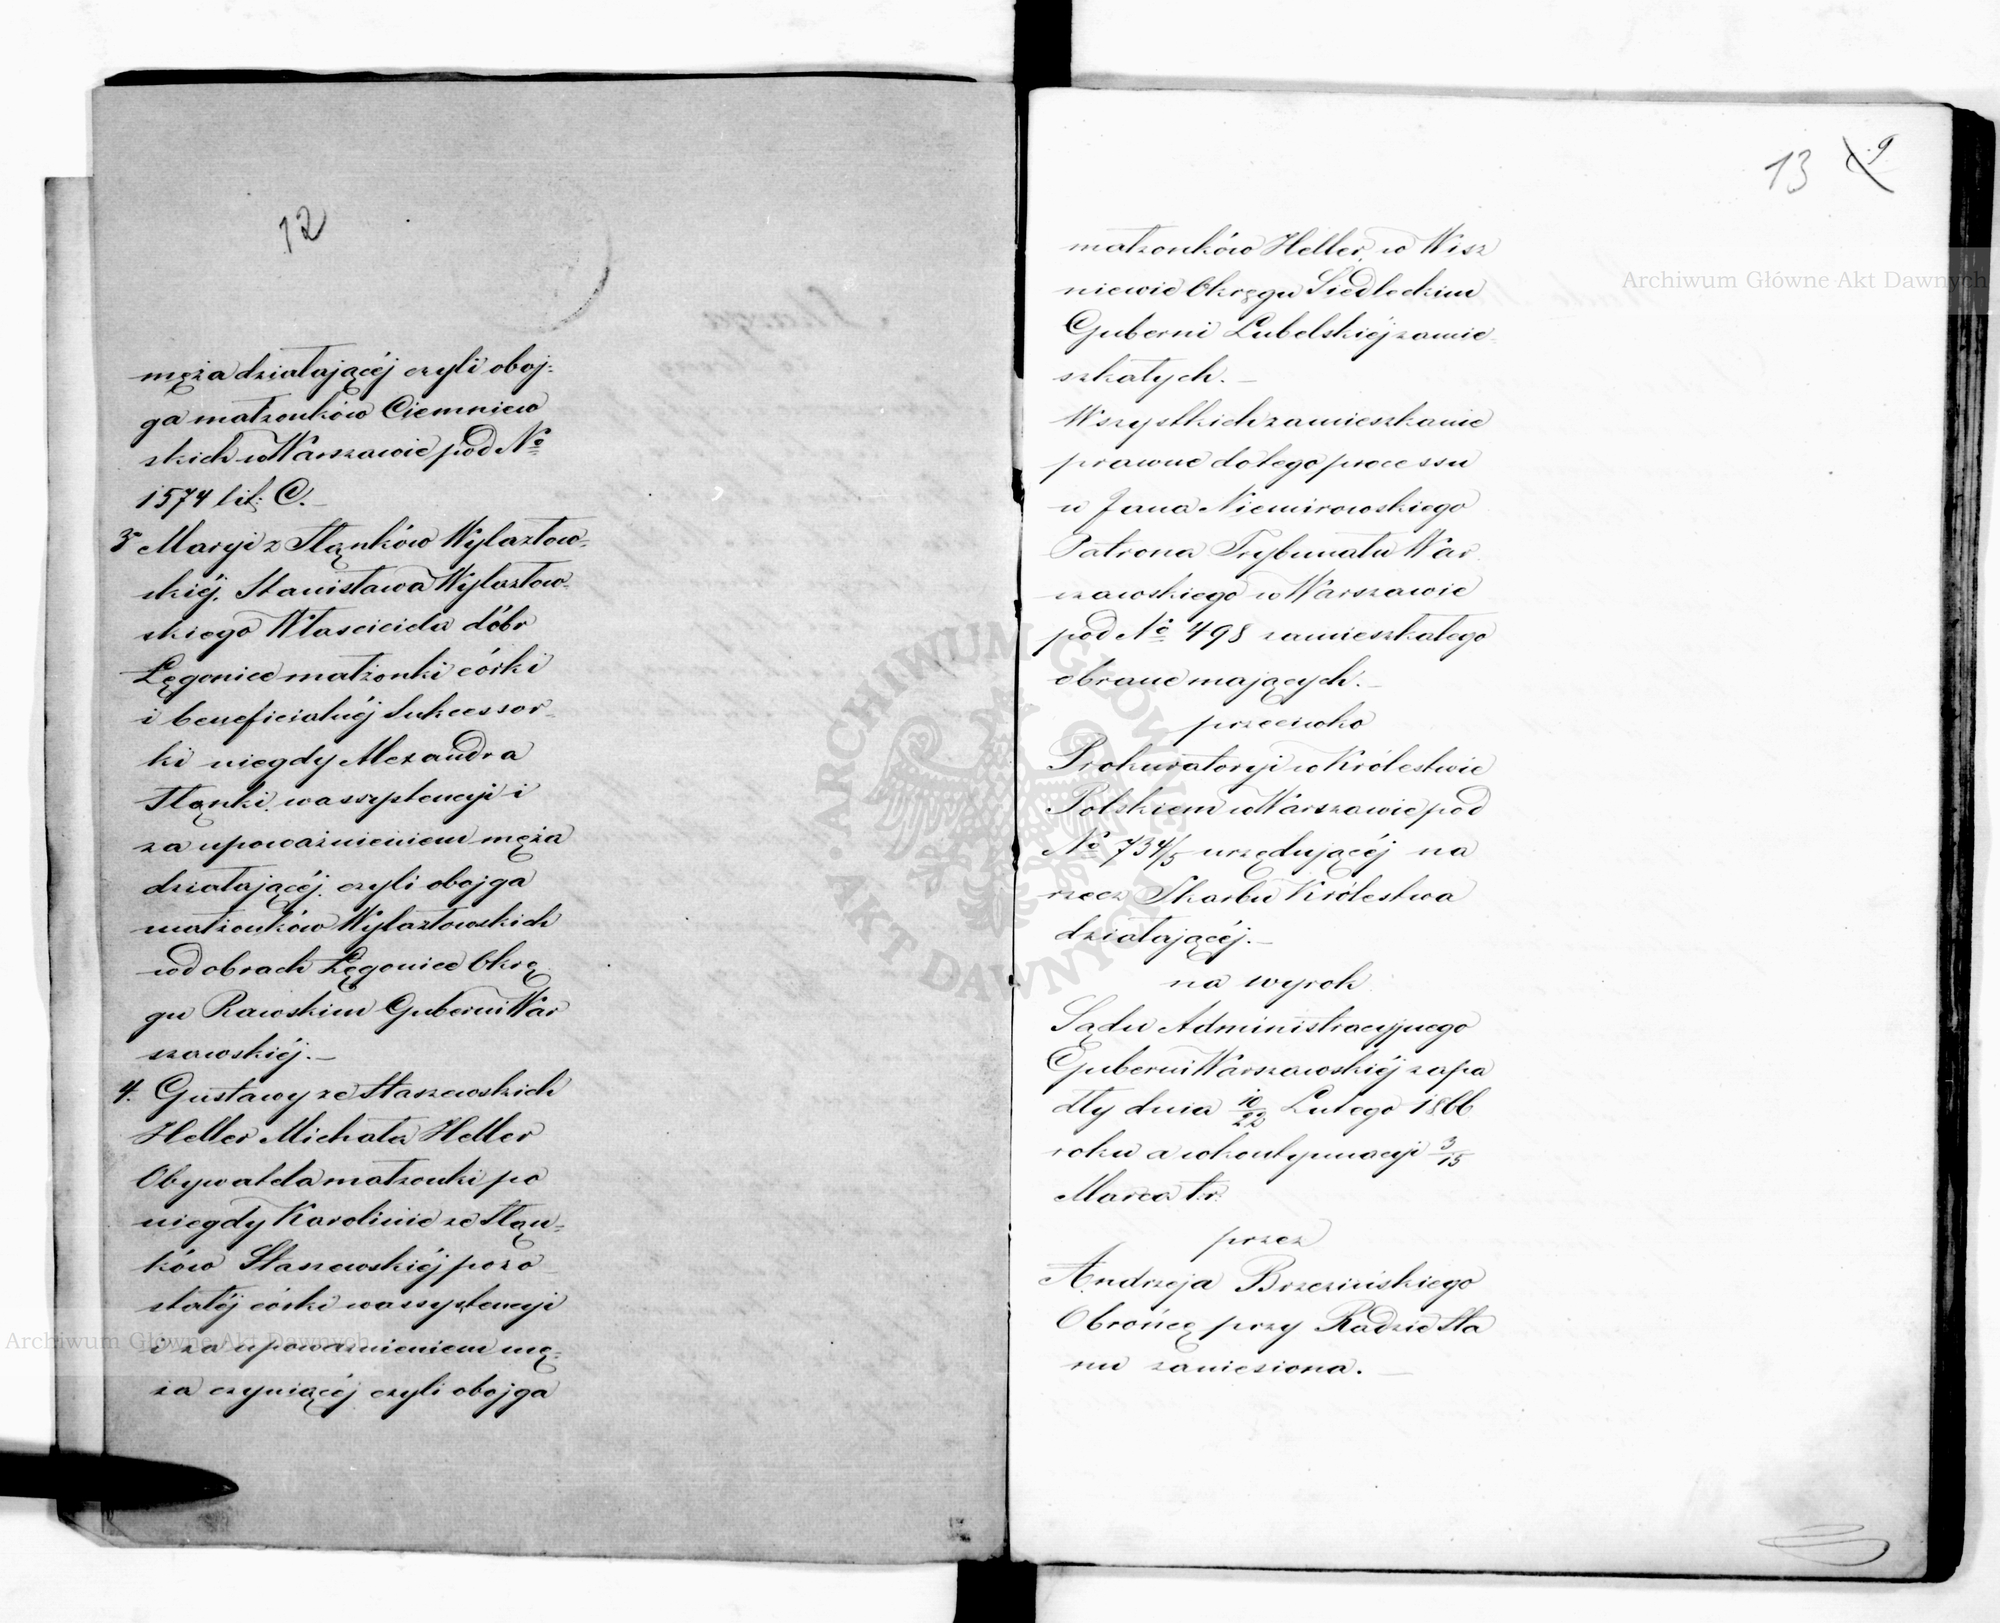 12
męża działającéj czyli oboj-
ga małżonków Ciemniew
skich w Warszawie pod No
1574 lit: C.
3o Maryi z Stąnków Wylazłow-
skiéj, Stanisława Wylazłow-
skiego Właściciela dóbr
Łęgonice małżonki córki
i beneficialnéj Sukcessor-
ki niegdy Alexandra
Stąnki, w assystencyi i
za upoważnieniem męża
działającéj, czyli obojga
małżonków Wylazłowskich
w dobrach Łęgonice Okrę
gu Rawskim Guberni War
szawskiéj.—
4. Gustawy ze Staszewskich
Heller Michała Heller
Obywatela małżonki po
niegdy Karolinie ze Stąn-
ków Staszewskiéj pozo
stałéj córki w assystencyi
i za upoważnieniem mę-
ża czyniącéj czyli obojga
13 9
małżonków Heller, w Wisz
niewie Okręgu Siedleckim
Guberni Lubelskiéj zamie
szkałych.—
Wszystkich zamieszkanie
prawne do tego processu
u Jana Niemirowskiego
Patrona Trybunału War
szawskiego w Warszawie
pod No 498 zamieszkałego
obrane mających.—
przeciwko
Prokuratoryi w Królestwie
Polskiem w Warszawie pod
No 734/5 urzędującéj na
rzecz Skarbu Królestwa
działającéj.—
na wyrok
Sądu Administracyjnego
Guberni Warszawskiéj zapa
dły dnia 10/22 Lutego 1866
roku a w kontynuacyi 3/15
Marca t.r.
przez
Andrzeja Brzezińskiego
Obrońcę przy Radzie Sta
nu zaniesiona.—
Archiwum Główne Akt Dawnych
Archiwum Główne Akt Dawnych
ARCHIWUM GŁÓWNE · AKT DAWNYCH ·